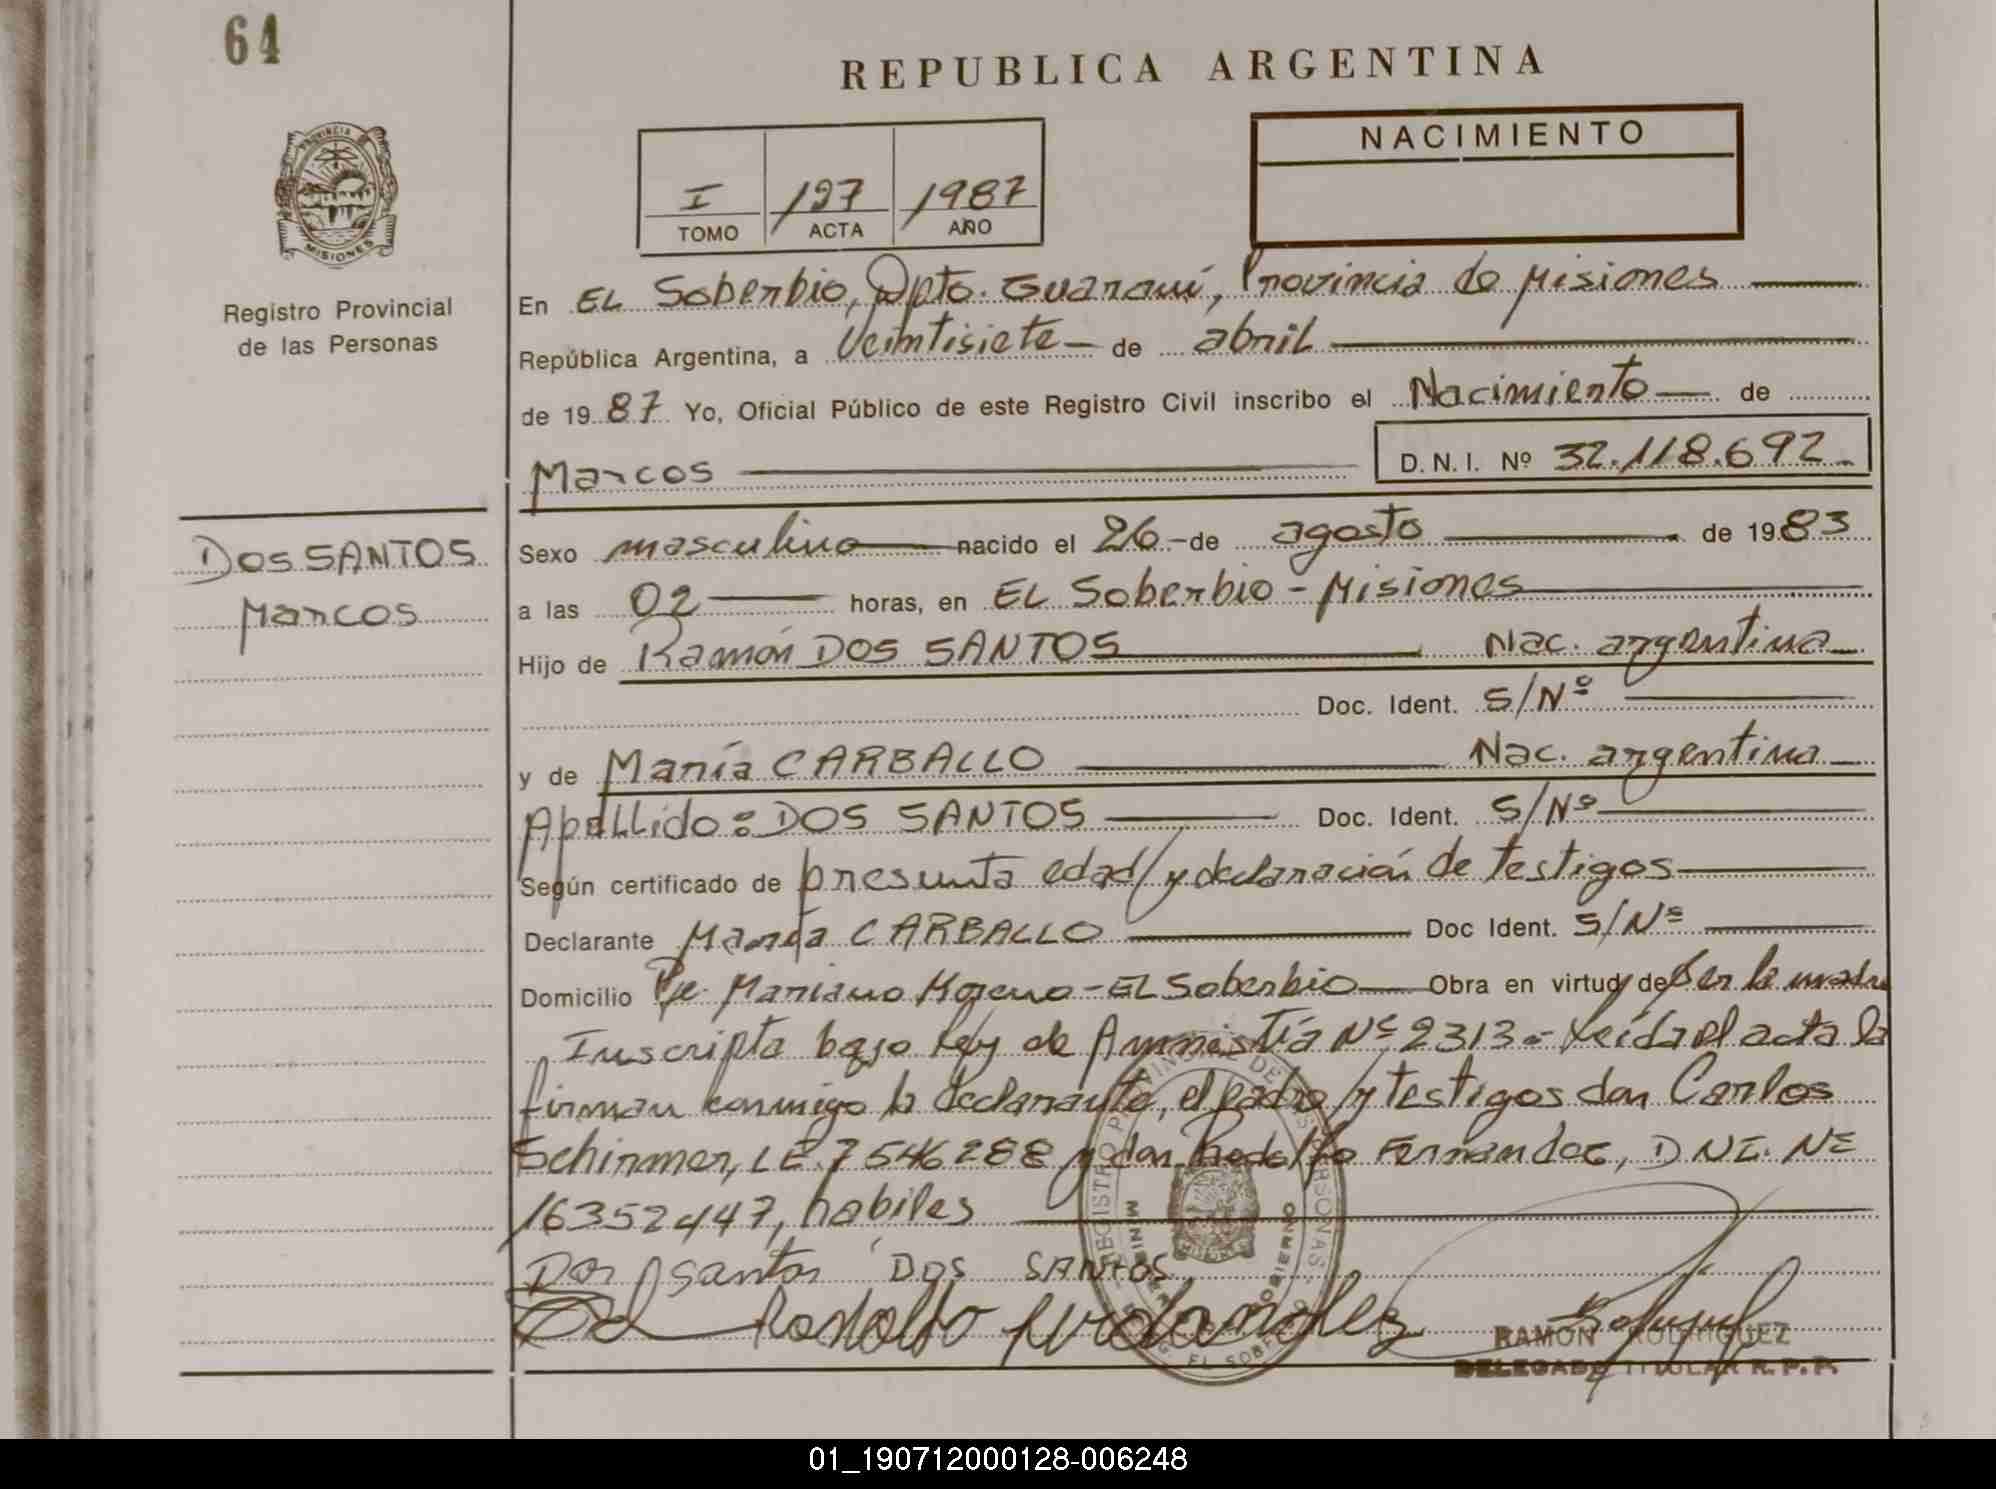 64
REPUBLICA ARGENTINA
NACIMIENTO
I /127 /1987
TOMO ACTA AÑO
PROVINCIA
MISIONES
Registro Provincial
de las Personas
En EL Soberbio, Dpto. Guaraní, Provincia de Misiones
República Argentina, a Veintisiete de abril
de 1987 Yo, Oficial Público de este Registro Civil inscribo el Nacimiento de
Marcos D. N. I. Nº 32.118.692
DOS SANTOS
Marcos
Sexo masculino nacido el 26 de agosto de 1983
a las 02 horas, en EL Soberbio - Misiones
Hijo de Ramón DOS SANTOS Nac. argentina
Doc. Ident. S/Nº
y de María CARBALLO Nac. argentina
Apellido: DOS SANTOS Doc. Ident. S/Nº
Según certificado de presunta edad y declaración de testigos
Declarante María CARBALLO Doc Ident. S/Nº
Domicilio Pje. Mariano Moreno - EL Soberbio Obra en virtud de ser la madre
Inscripta bajo Ley de Amnistía Nº 2313 - Leída el acta la
firman conmigo la declarante, el padre y testigos don Carlos
Schirmer, LE. 7546288 y don Rodolfo Fernandez, DNI. Nº
16352447, habiles
Dos santos DOS SANTOS
Rodolfo
RAMON RODRIGUEZ
DELEGADO TITULAR R. P. P.
01_190712000128-006248